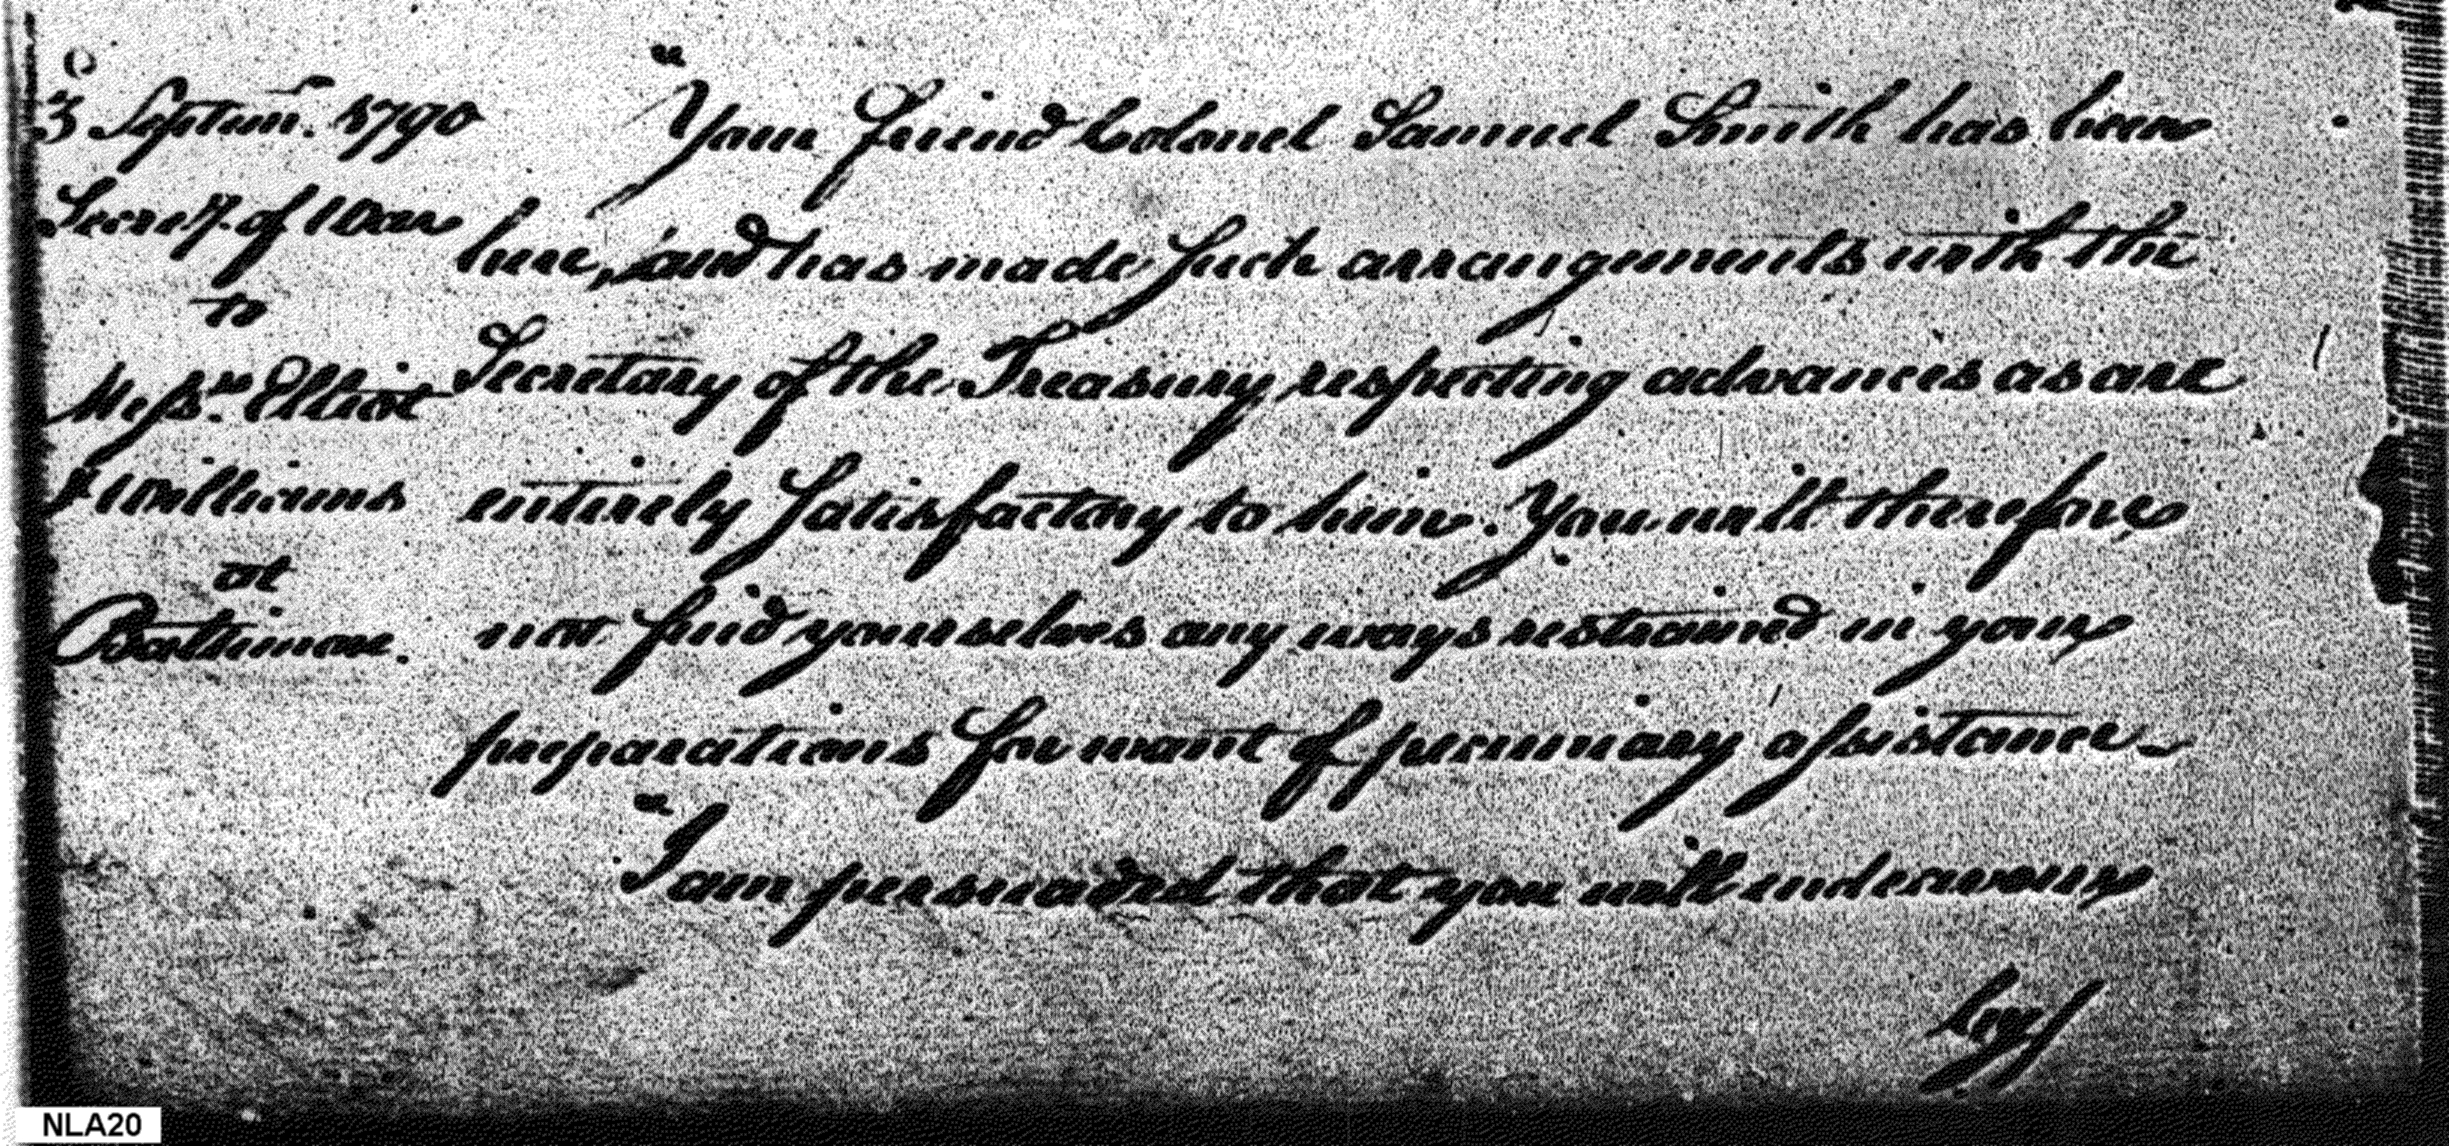 3 Septem. 1790
Secrety. of War
to
Messrs. Elliot
& Williams
at
Baltimore.
"Your friend Colonel Samuel Smith has been
here, and has made such arrangements with the
Secretary of the Treasury respecting advances as are
entirely satisfactory to him. You will therefore
not find yourselves any ways restrained in your
preparations for want of pecuniary assistance.
"I am persuaded that you will endeavour
by
NLA20